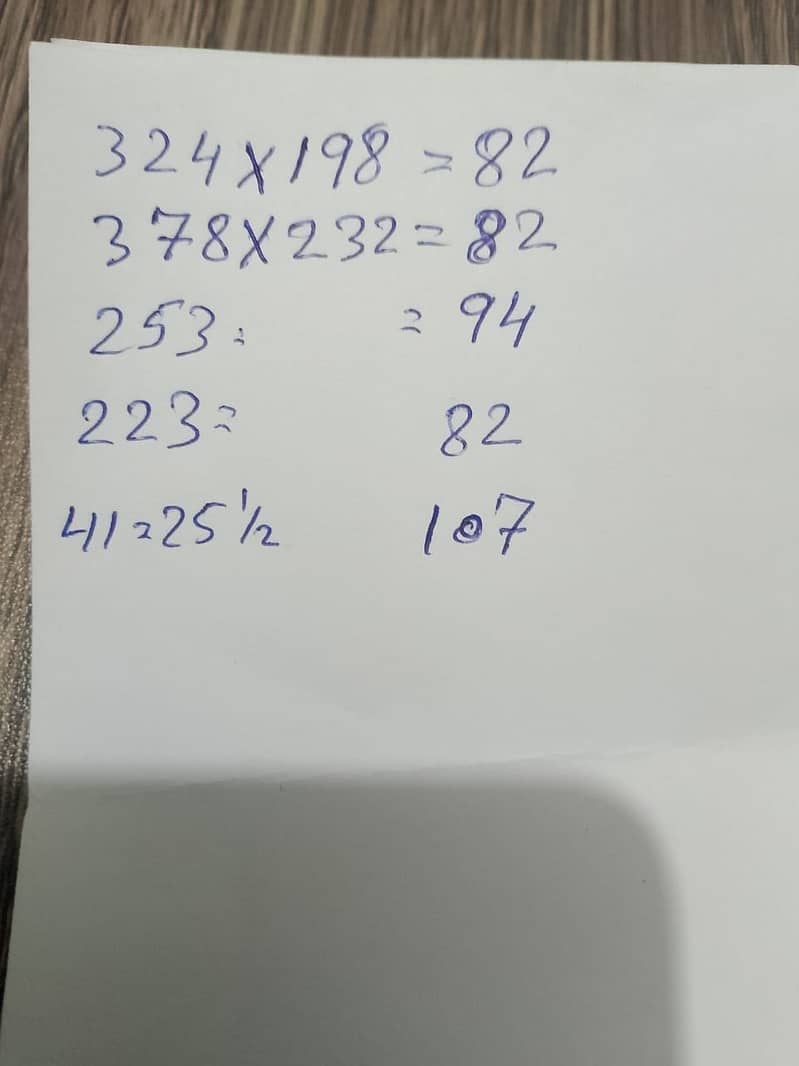 324x198 = 82
378x232 = 82
253 = = 94
223 = 82
41 = 25 1/2 107